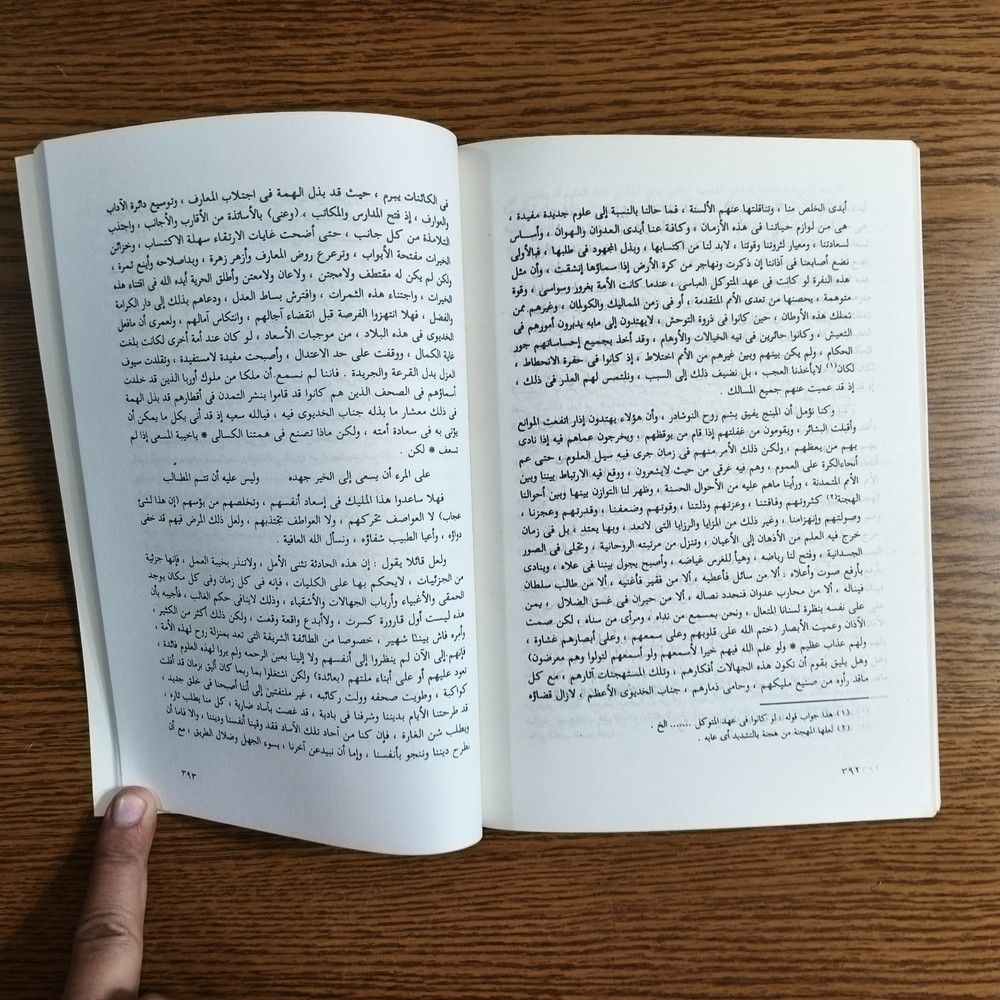 أيدى الخلص منا ، وتناقلتها عنهم الألسنة ، فما حالنا بالنسبة إلى علوم جديدة مفيدة ،
هى من لوازم حياتنا فى هذه الأزمان ، وكافة عنا أيدى العدوان والهوان ، وأساس
لسعادتنا ، ومعيار لثروتنا وقوتنا ، لابد لنا من اكتسابها ، وبذل المجهود فى طلبها ، فبالأولى
نضع أصابعنا فى آذاننا إن ذكرت ونهاجر من كرة الأرض إذا سماؤها إنشقت ، وأن مثل
هذه النفرة لو كانت فى عهد المتوكل العباسى ، عندما كانت الأمة بغرور وسواسى ، وقوة
متوهمة ، يحصنها من تعدى الأمم المتقدمة ، أو فى زمن المماليك والكولمان ، وغيرهم ممن
تملك هذه الأوطان ، حين كانوا فى ذروة التوحش ، لايهتدون إلى مابه يدبرون أمورهم فى
التعيش ، وكانوا حائرين فى تيه الخيالات والأوهام ، وقد أخذ بجميع إحساساتهم جور
الحكام ، ولم يكن بينهم وبين غيرهم من الأمم اختلاط ، إذ كانوا فى حفرة الانحطاط ،
لكان(١) لايأخذنا العجب ، بل نضيف ذلك إلى السبب ، ونلتمس لهم العذر فى ذلك ،
إذ قد عميت عنهم جميع المسالك .
وكنا نؤمل أن المبنج يفيق بشم روح النوشادر ، وأن هؤلاء يهتدون إذار اتفعت الموانع
وأقبلت البشائر ، ويقومون من غفلتهم إذا قام من يوقظهم ، ويخرجون عماهم فيه إذا نادى
بهم من يعظهم ، ولكن ذلك الأمر منهم فى زمان جرى فيه سيل العلوم ، حتى عم
أنحاءالكرة على العموم ، وهم فيه غرقى من حيث لايشعرون ، ووقع فيه الارتباط بيننا وبين
الأمم المتمدنة ، ورأينا ماهم عليه من الأحوال الحسنة ، وظهر لنا التوازن بينها وبين أحوالنا
الهجنة(٢) كثروتهم وفاقتنا ، وعزتهم وذلتنا ، وقوتهم وضعفنا ، وقدرتهم وعجزنا ،
وصولتهم وإنهزامنا ، وغير ذلك من المزايا والرزايا التى لاتعد ، وبها يعتد ، بل فى زمان
خرج فيه العلم من الأذهان إلى الأعيان ، وتنزل من مرتبته الروحانية ، وتحلى فى الصور
الجسدانية ، وفتح لنا رياضه ، وهيأ للغرس غياضه ، وأصبح يجول بيننا فى علاه ، وينادى
بأرفع صوت وأعلاه : ألا من سائل فأعطيه ، ألا من فقير فأغنيه ، ألا من طالب سلطان
فيناله ، ألا من محارب عدوان فنحدد نصاله ، ألا من حيران فى غسق الضلال ، يمن
على نفسه بنظرة لسنانا المتعال ، ونحن بمسمع من نداه ، ومرأى من سناه ، لكن صمت
الآذان وعميت الأبصار (ختم الله على قلوبهم وعلى سمعهم ، وعلى أبصارهم غشاوة ،
ولهم عذاب عظيم * ولو علم الله فيهم خيرا لأسمعهم ولو أسمعهم لتولوا وهم معرضون)
وهل يليق بقوم أن تكون هذه الجهالات أفكارهم ، وتلك المستهجنات آثارهم ، مع كل
ماقد رأوه من صنيع مليكهم ، وحامى ذمارهم ، جناب الخديوى الأعظم ، لازال قضاؤه
(١) هذا جواب قوله ، لو كانوا فى عهد المتوكل ....... الخ .
(٢) لعلها المهجنة من هجنة بالتشديد أى عابه .
٣٩٢
فى الكائنات يبرم ، حيث قد بذل الهمة فى اجتلاب المعارف ، وتوسيع دائرة الآداب
والعوارف ، إذ فتح المدارس والمكاتب ، (وعنى) بالأساتذة من الأقارب والأجانب ، واجتذب
التلامذة من كل جانب ، حتى أضحت غايات الارتقاء سهلة الاكتساب ، وخزائن
الخيرات مفتحة الأبواب ، وترعرع روض المعارف وأزهر زهرة ، وبداصلاحه وأينع ثمرة ،
ولكن لم يكن له مقتطف ولامجتن ، ولاعان ولامعتن وأطلق الحرية أيده الله فى اقتناء هذه
الخيرات ، واجتناء هذه الثمرات ، وافترش بساط العدل ، ودعاهم بذلك إلى دار الكرامة
والفضل ، فهلا انتهزوا الفرصة قبل انقضاء آجالهم ، وانتكاس آمالهم ، ولعمرى أن مافعل
الخديوى فى هذه البلاد ، من موجبات الأسعاد ، لو كان عند أمة أخرى لكانت بلغت
غاية الكمال ، ووقفت على حد الاعتدال ، وأصبحت مفيدة لامستفيدة ، وتقلدت سيوف
العزل بدل القرعة والجريدة . فاننا لم نسمع أن ملكا من ملوك أوربا الذين قد خلدت
أسماؤهم فى الصحف الذين هم كانوا قد قاموا بنشر التمدن فى أقطارهم قد بذل الهمة
فى ذلك معشار ما بذله جناب الخديوى فيه ، فبالله سعيه إذ قد أتى بكل ما يمكن أن
يؤتى به فى سعادة أمته ، ولكن ماذا تصنع فى همتنا الكسالى * ياخيبة المسعى إذا لم
تسعف * لكن .
على المرء أن يسعى إلى الخير جهده وليس عليه أن تتم المطالب
فهلا ساعدوا هذا المليك فى إسعاد أنفسهم ، وتخلصهم من بؤسهم (إن هذا لشئ
عجاب) لا العواصف تحركهم ، ولا العواطف تجتذبهم ، ولعل ذلك المرض فيهم قد خفى
دواؤه ، وأعيا الطبيب شفاؤه ، ونسأل الله العافية .
ولعل قائلا يقول : إن هذه الحادثة تثنى الأمل ، ولاتنذر بخيبة العمل ، فإنها جزئية
من الجزئيات ، لايحكم بها على الكليات ، فإنه فى كل زمان وفى كل مكان يوجد
الحمقى والأغبياء وأرباب الجهالات والأشقياء ، وذلك لاينافى حكم الغالب ، فأجيبه بأن
هذه ليست أول قارورة كسرت ، ولاأبدع واقعة وقعت ، ولكن ذلك أكثر من الكثير ،
وأمره فاش بيننا شهير ، خصوصا من الطائفة الشريفة التى تعد بمنزلة روح لهذه الأمة ،
فإنهم إلى الآن لم ينظروا إلى أنفسهم ولا إلينا بعين الرحمه ولم يروا لهذه العلوم فائدة ،
تعود عليهم أو على أبناء ملتهم (بعائدة) ولكن اشتغلوا بما ربما كان أليق بزمان قد أفلت
كواكبة ، وطويت صحفه وولت ركائبه ، غير ملتفتين إلى أننا أصبحنا فى خلق جديد ،
قد طرحتنا الأيام بديننا وشرفنا فى بادية ، قد غصت بآساد ضارية ، كل منا يطلب ثاره ،
ويطلب شن الغارة ، فإن كنا من آحاد تلك الآساد فقد وقينا أنفسنا وديننا ، والا فاما أن
نطرح ديننا وننجو بأنفسنا ، وإما أن نبيدعن آخرنا ، بسوء الجهل وضلال الطريق ، مع أن
٣٩٣